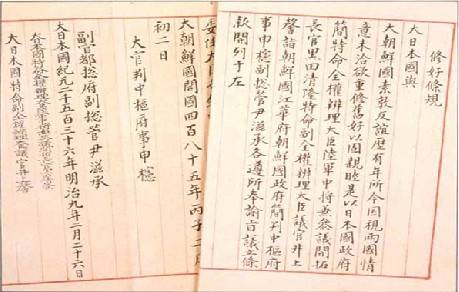 修好條規
大日本國與
大朝鮮國素敦友誼歷有年所今因視兩國情
意未洽欲重修舊好以固親睦是以日本國政府
簡特命全權辨理大臣陸軍中將兼參議開拓
長官黑田清隆特命副全權辨理大臣議官井上
馨詣朝鮮國江華府朝鮮國政府簡判中樞府
事申櫶副摠管尹滋承各遵所奉諭旨議立條
款開列于左
大朝鮮國開國四百八十五年丙子二月
初二日
大官判中樞府事申櫶
副官都摠府副摠管尹滋承
大日本國紀元二千五百三十六年明治九年二月二十六日
大日本國特命副全權辨理大臣議官井上